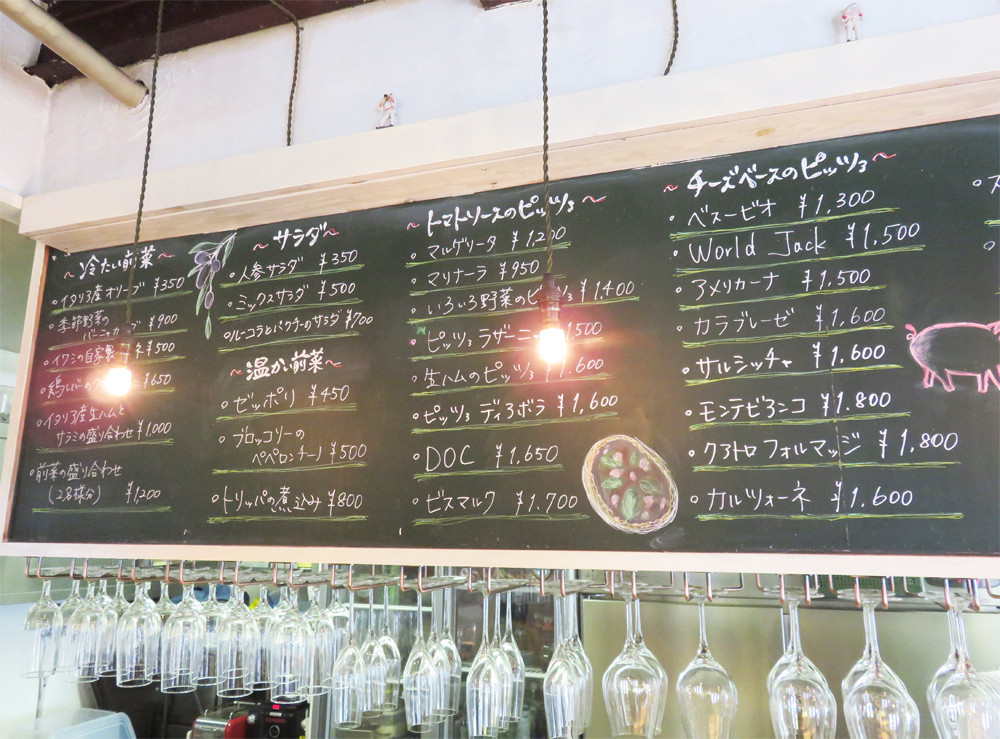 ~ 冷たい前菜 ~
・イタリア産オリーブ ¥350
・季節野菜の
バーニャカウダ ¥900
・イワシの自家製 ¥500
・鶏レバーの ¥650
・イタリア産生ハムと
サラミの盛り合わせ ¥1,000
・前菜の盛り合わせ
(2名様分) ¥1,200
~ サラダ ~
・人参サラダ ¥350
・ミックスサラダ ¥500
・ルーコラとパクチーのサラダ ¥700
~ 温かい前菜 ~
・ゼッポリ ¥450
・ブロッコリーの
ペペロンチーノ ¥500
・トリッパの煮込み ¥800
~ トマトソースのピッツァ ~
・マルゲリータ ¥1,200
・マリナーラ ¥950
・いろいろ野菜のピッツァ ¥1,400
・ピッツァ ラザーニャ 500
・生ハムのピッツァ ¥1,600
・ピッツァ ディアボラ ¥1,600
・DOC ¥1,650
・ビスマルク ¥1.700
~ チーズベースのピッツァ ~
・ベスービオ ¥1,300
・World Jack ¥1,500
・アメリカーナ ¥1,500
・カラブレーゼ ¥1,600
・サルシッチャ ¥1,600
・モンテビアンコ ¥1.800
・クアトロ フォルマッジ ¥1,800
・カルツォーネ ¥1.600